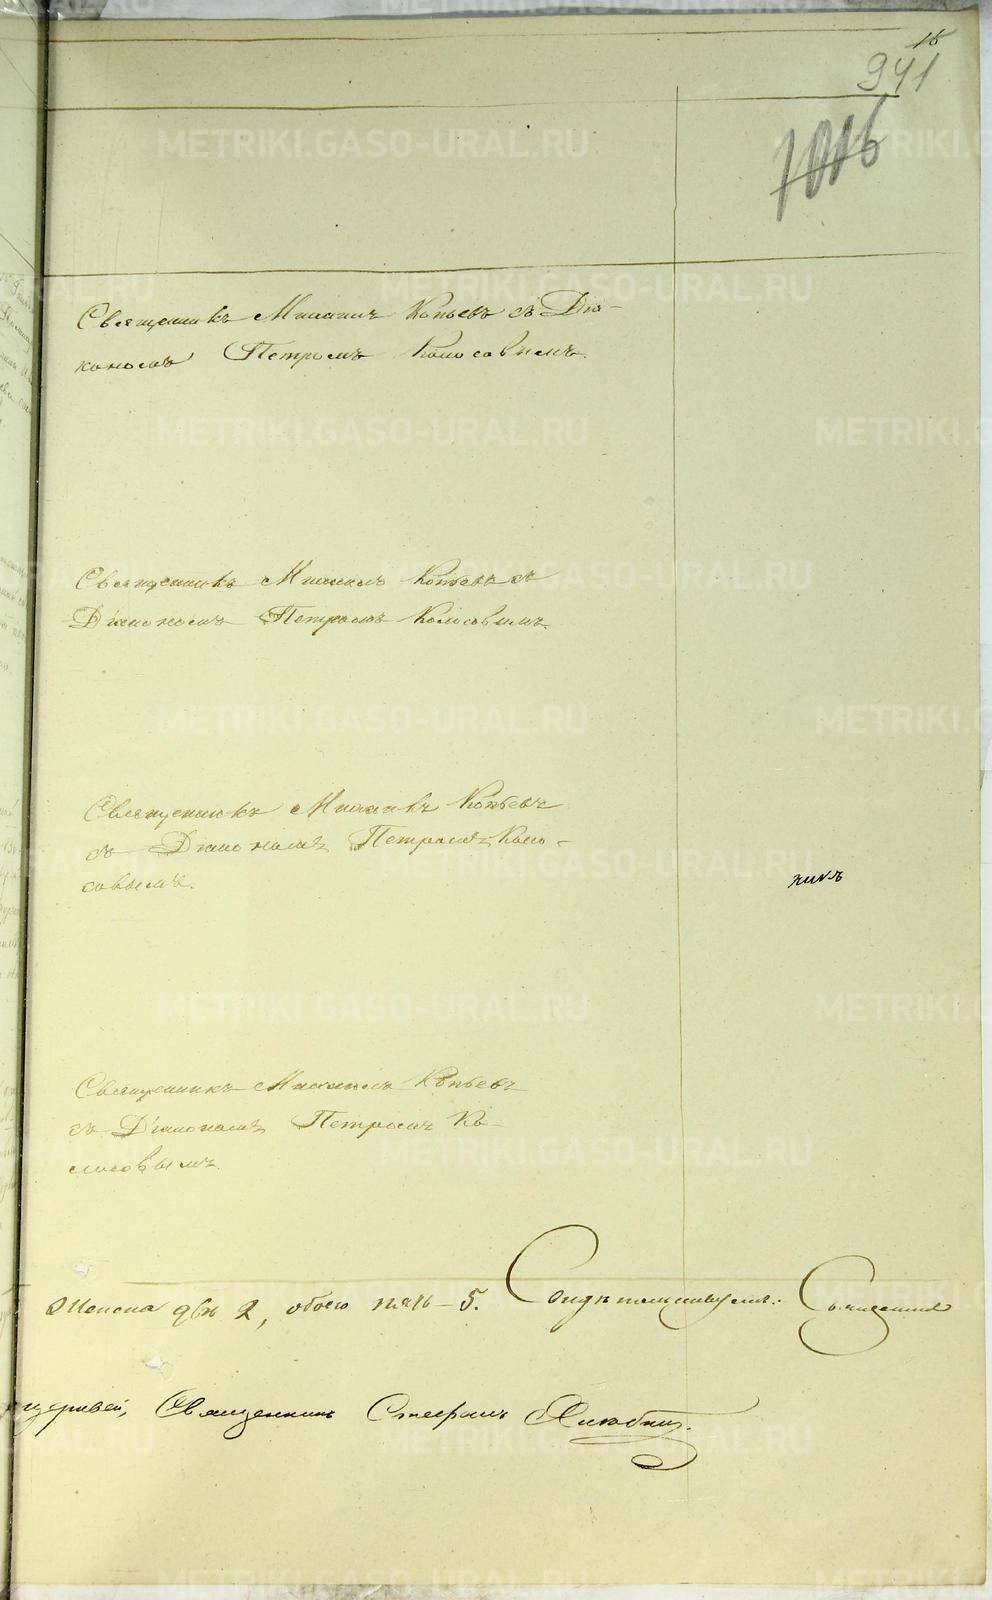 16
941
1016
Священникъ Михаилъ Копьевъ съ Діа-
кономъ Петромъ Колосовымъ.
Священникъ Михаилъ Копьевъ съ
Діакономъ Петромъ Колосовымъ.
Священникъ Михаилъ Копьевъ
съ Діакономъ Петромъ Коло-
совымъ.
никъ
Священникъ Михаилъ Копьевъ
съ Діакономъ Петромъ Ко-
лосовымъ.
Женска двѣ 2, обоего пять - 5. Свидѣтельствуемъ: Священникъ
церквей, Священникъ Стефанъ
METRIKI.GASO-URAL.RU